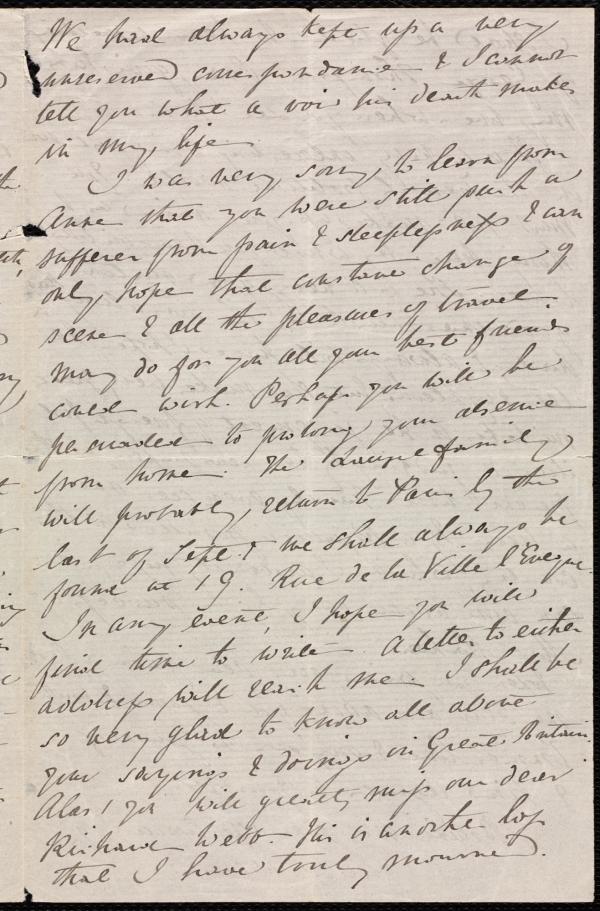 We had always kept up a very
unreserved correspondance & I cannot
tell you what a void his death makes
in my life.
I was very sorry to learn from
Anne that you were still such a
sufferer from pain & sleeplessness & can
only hope that constant change of
scene & all the pleasures of travel
may do for you all your best friends
could wish. Perhaps you will be
persuaded to prolong your absence
from home. The Laugel family
will probably return to Paris by the
last of Sept. & we shall always be
found at 19. Rue de la Ville l'Eveque.
In any event, I hope you will
find time to write. A letter to either
address will reach me. I shall be
so very glad to know all about
your sayings & doings in Great Britain.
Alas! you will greatly miss our dear
Richard Webb. His is another loss
that I have truly mourned.